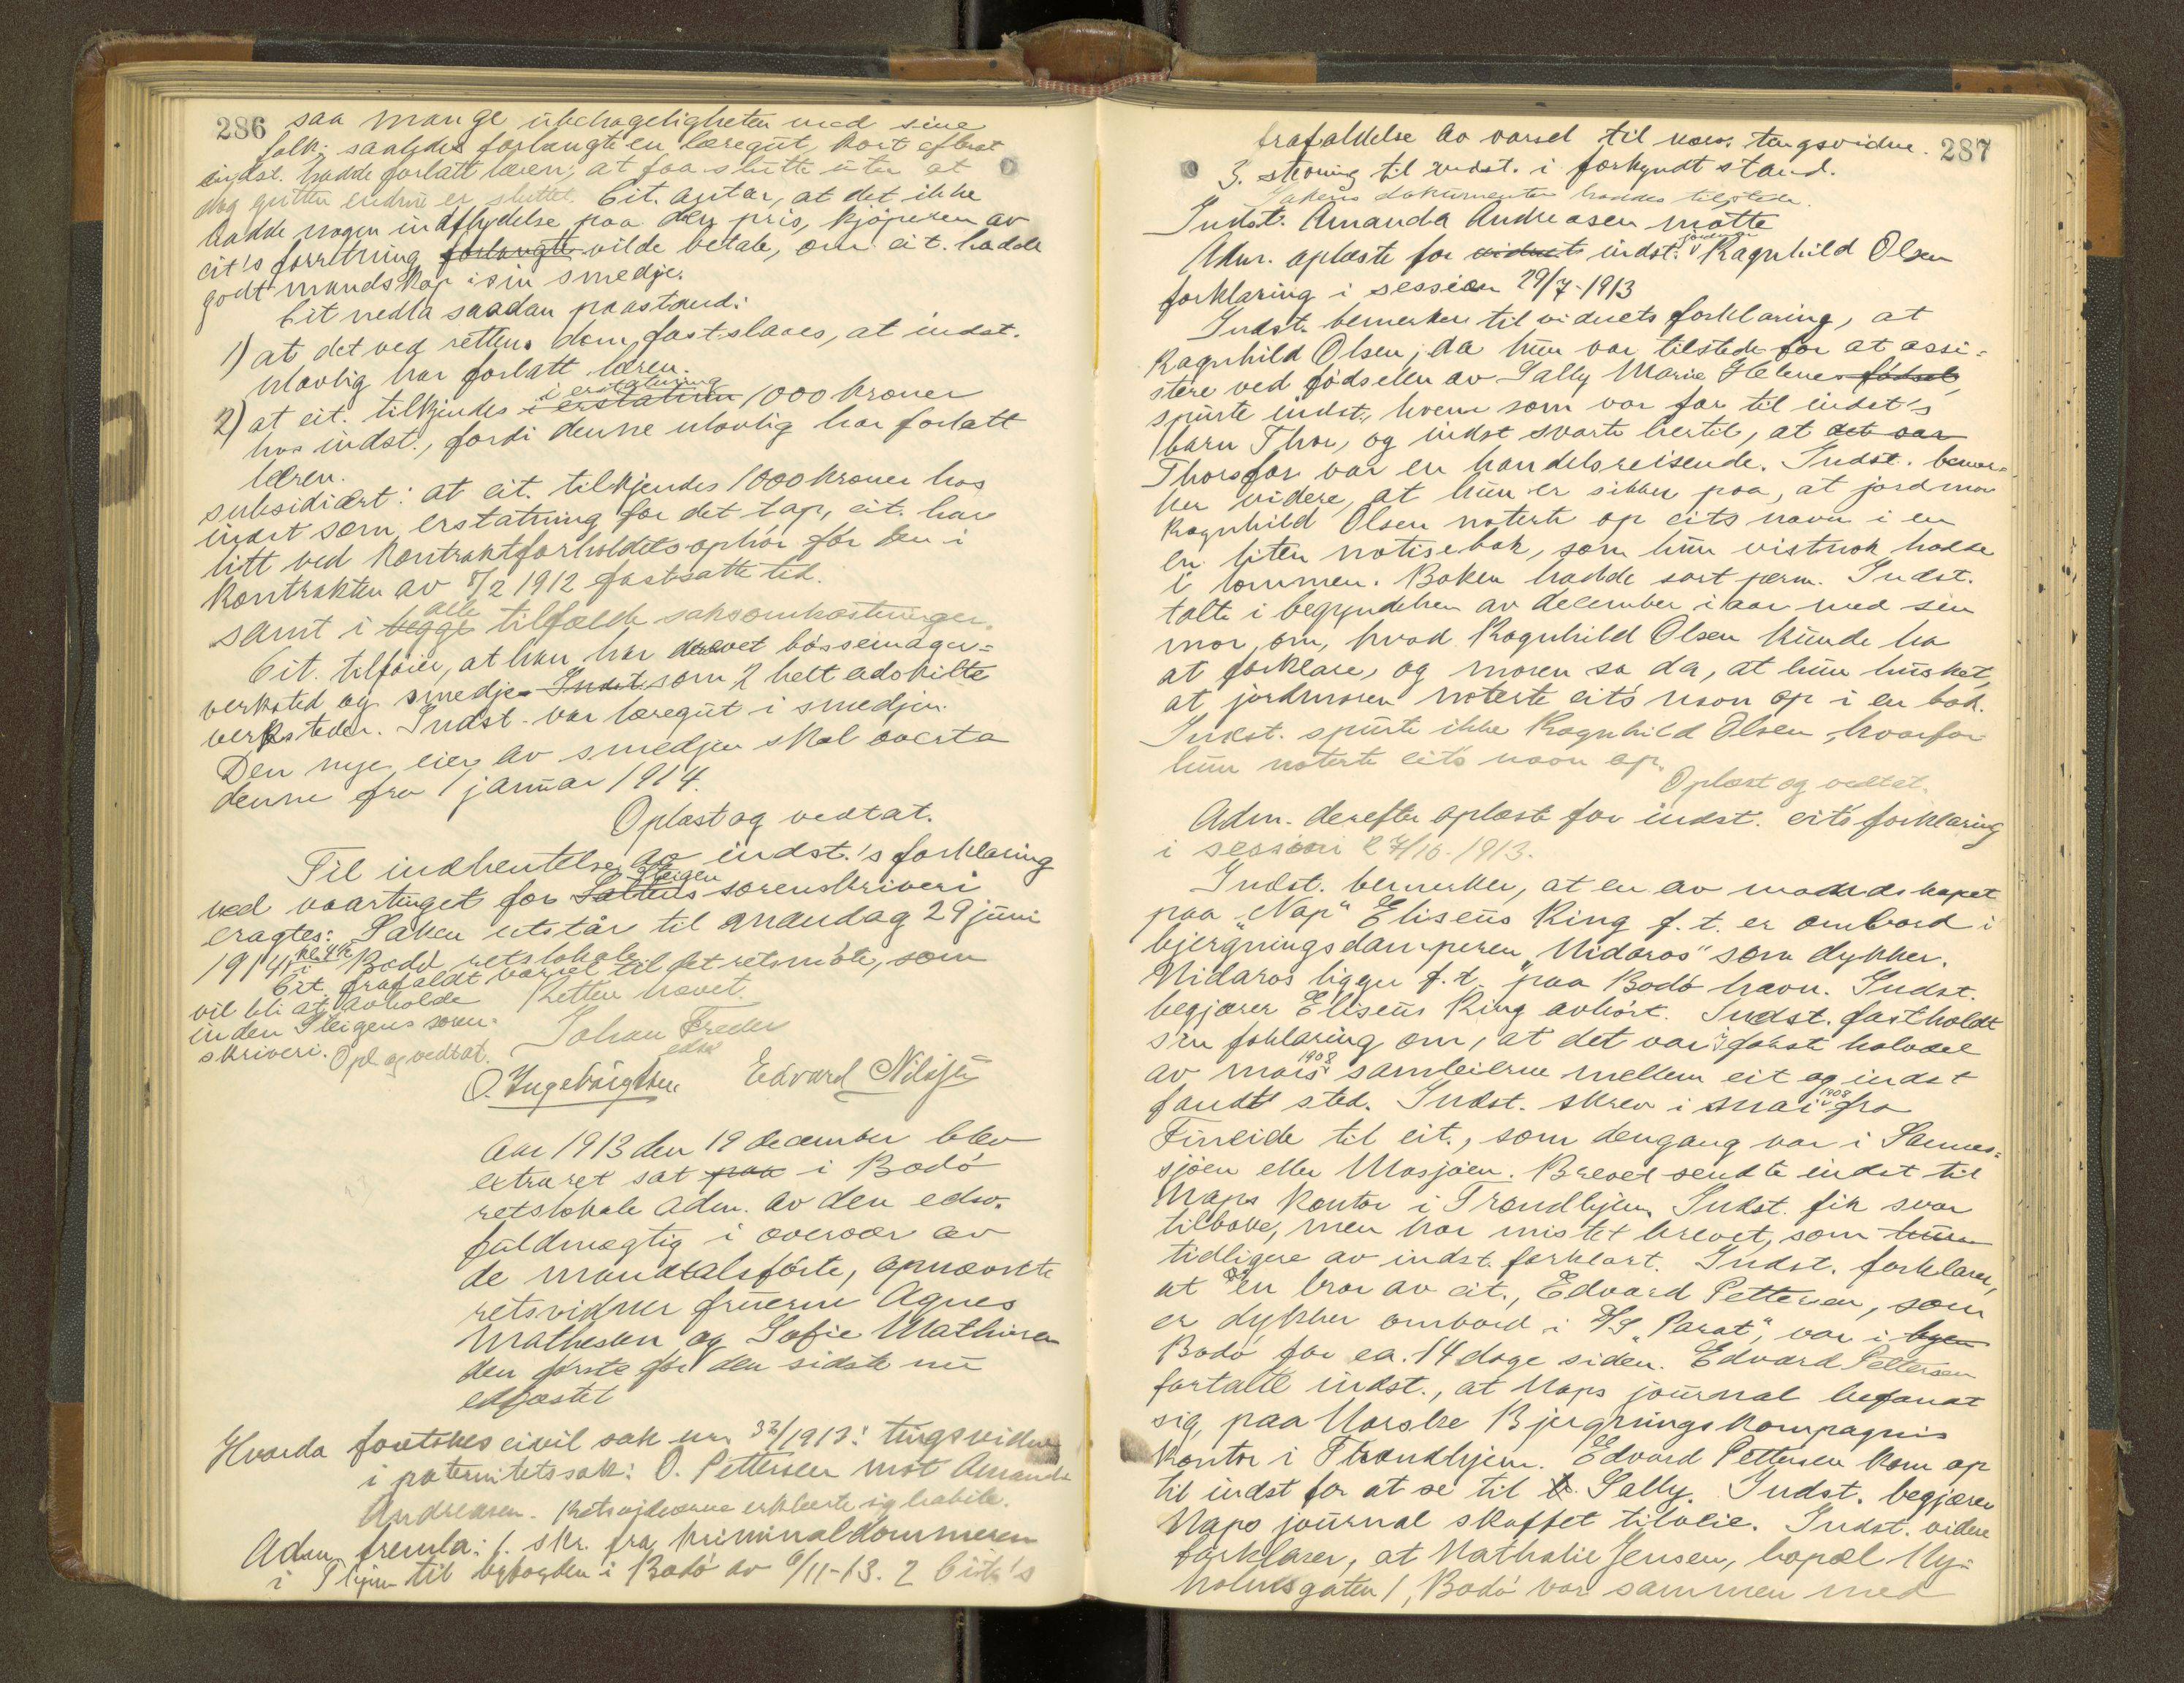 286
saa mange ubehageligheter med sine
folk; saaledes forlangte en læregut, kort efterat
indst. hadde forlatt læren, at faa slutte uten at
dog gutten endnu er sluttet. Cit. antar, at det ikke
hadde nogen indflydelse paa den pris, kjøperen av
cit's forretning forlangte vilde betale, om cit. hadde
godt mandskap i sin smedje.
Cit nedla saadan paastand:
1) at det ved rettens dom fastslaaes, at indst.
ulovlig har forlatt læren.
2) at cit. tilkjendes i erstatning 1000 kroner
hos indst., fordi denne ulovlig har forlatt
læren.
subsidiært: at cit. tilkjendes 1000 kroner hos
indst som erstatning for det tap, cit. har
litt ved kontraktforholdets ophør før den i
kontrakten av 8/2 1912 fastsatte tid.
samt i begge alle tilfælde saksomkostninger.
Cit. tilføier, at han har drevet bøssemager-
verksted og smedje Indst som 2 helt adskilte
verksteder. Indst. var læregut i smedjen.
Den nye eier av smedjen skal overta
denne fra 1 januar 1914.
Oplæst og vedtat.
Til indhentelse av indst.'s forklaring
ved vaartinget for Saltens Steigen sorenskriveri
eragtes: Saken utstår til mandag 29 juni
1914 kl. 4½ i Bodø retslokale.
Cit. frafaldt varsel til det retsmøte, som
vil bli at avholde Retten hævet.
inden Steigens soren-
skriveri. Opl. og vedtat. Johan Freder
edsv
O. Ingebrigtsen Edvard Nilsen
Aar 1913 den 19 december blev
extraret sat paa i Bodø
retslokale adm. av den edsv.
fuldmægtig i overvær av
de mandtalsførte, opnævnte
retsvidner fruerne Agnes
Mathesen og Sofie Mathisen
den første før den sidste nu
edfæstet
Hvorda foretokes civil sak nr. 33/1913: tingsvidne
i paternitetssak: O. Pettersen mot Amanda
Andreasen. Retsvidnerne erklærte sig habile.
Adm. fremla: 1. skr. fra kriminaldommeren
i Thjem til byfogden i Bodø av 6/11-13. 2 Cit's
287
frafaldelse av varsel til næv. tingsvidne.
3. stevning til indst. i forkyndt stand.
Sakens dokumenter haddes tilstede.
Indst. Amanda Andreasen møtte
Adm. oplæste for vidnets indst. jordmor Ragnhild Olsen
forklaring i session 29/7-1913
Indst. bemerker til vidnets forklaring, at
Ragnhild Olsen, da hun var tilstede for at assi-
stere ved fødselen av Sally Marie Helene fødsel,
spurte indst., hvem som var far til indst's
barn Thor, og indst svarte hertil, at det var
Thors far var en handelsreisende. Indst. bemer-
ker videre, at hun er sikker paa, at jordmor
Ragnhild Olsen noterte op cits navn i en
en liten notisebok, som hun vistnok hadde
i lommen. Boken hadde sort perm. Indst.
talte i begyndelsen av december i aar med sin
mor om, hvad Ragnhild Olsen kunde ha
at forklare, og moren sa da, at hun husket,
at jordmoren noterte cit's navn op i en bok.
Indst. spurte ikke Ragnhild Olsen, hvorfor
hun noterte cit's navn op.
Oplæst og vedtat.
Adm. derefter oplæste for indst. cit's forklaring
i session 27/10-1913.
Indst. bemerker, at en av mandskapet
paa "Nap" Eliseus Ring f. t. er ombord i
bjergningsdamperen "Nidaros" som dykker.
Nidaros ligger f. t. paa Bodø havn. Indst.
begjærer Eliseus Ring avhørt. Indst. fastholdt
sin foklaring om, at det var i første halvdel
av mars 1908 samleierne mellem cit og indst
fandt sted. Indst. skrev i mai 1908 fra
Finneide til cit., som dengang var i Sannes-
sjøen eller Mosjøen. Brevet sendte indst til
Naps kontor i Trondhjem. Indst. fik svar
tilbake, men har mistet brevet, som hun
tidligere av indst. forklart. Indst. forklarer,
at en bror av cit., Edvard Pettersen, som
er dykker ombord i D/S "Parat", var i byen
Bodø for ca. 14 dage siden. Edvard Pettersen
fortalte indst., at Naps journal befandt
sig paa Norske Bjergningskompagnis
kontor i Trondhjem. Edvard Pettersen kom op
til indst for at se til Sally. Indst. begjærer
Naps journal skaffet tilveie. Indst. videre
forklarer, at Nathalie Jensen, bopæl Ny-
holmsgaten 1, Bodø var sammen med